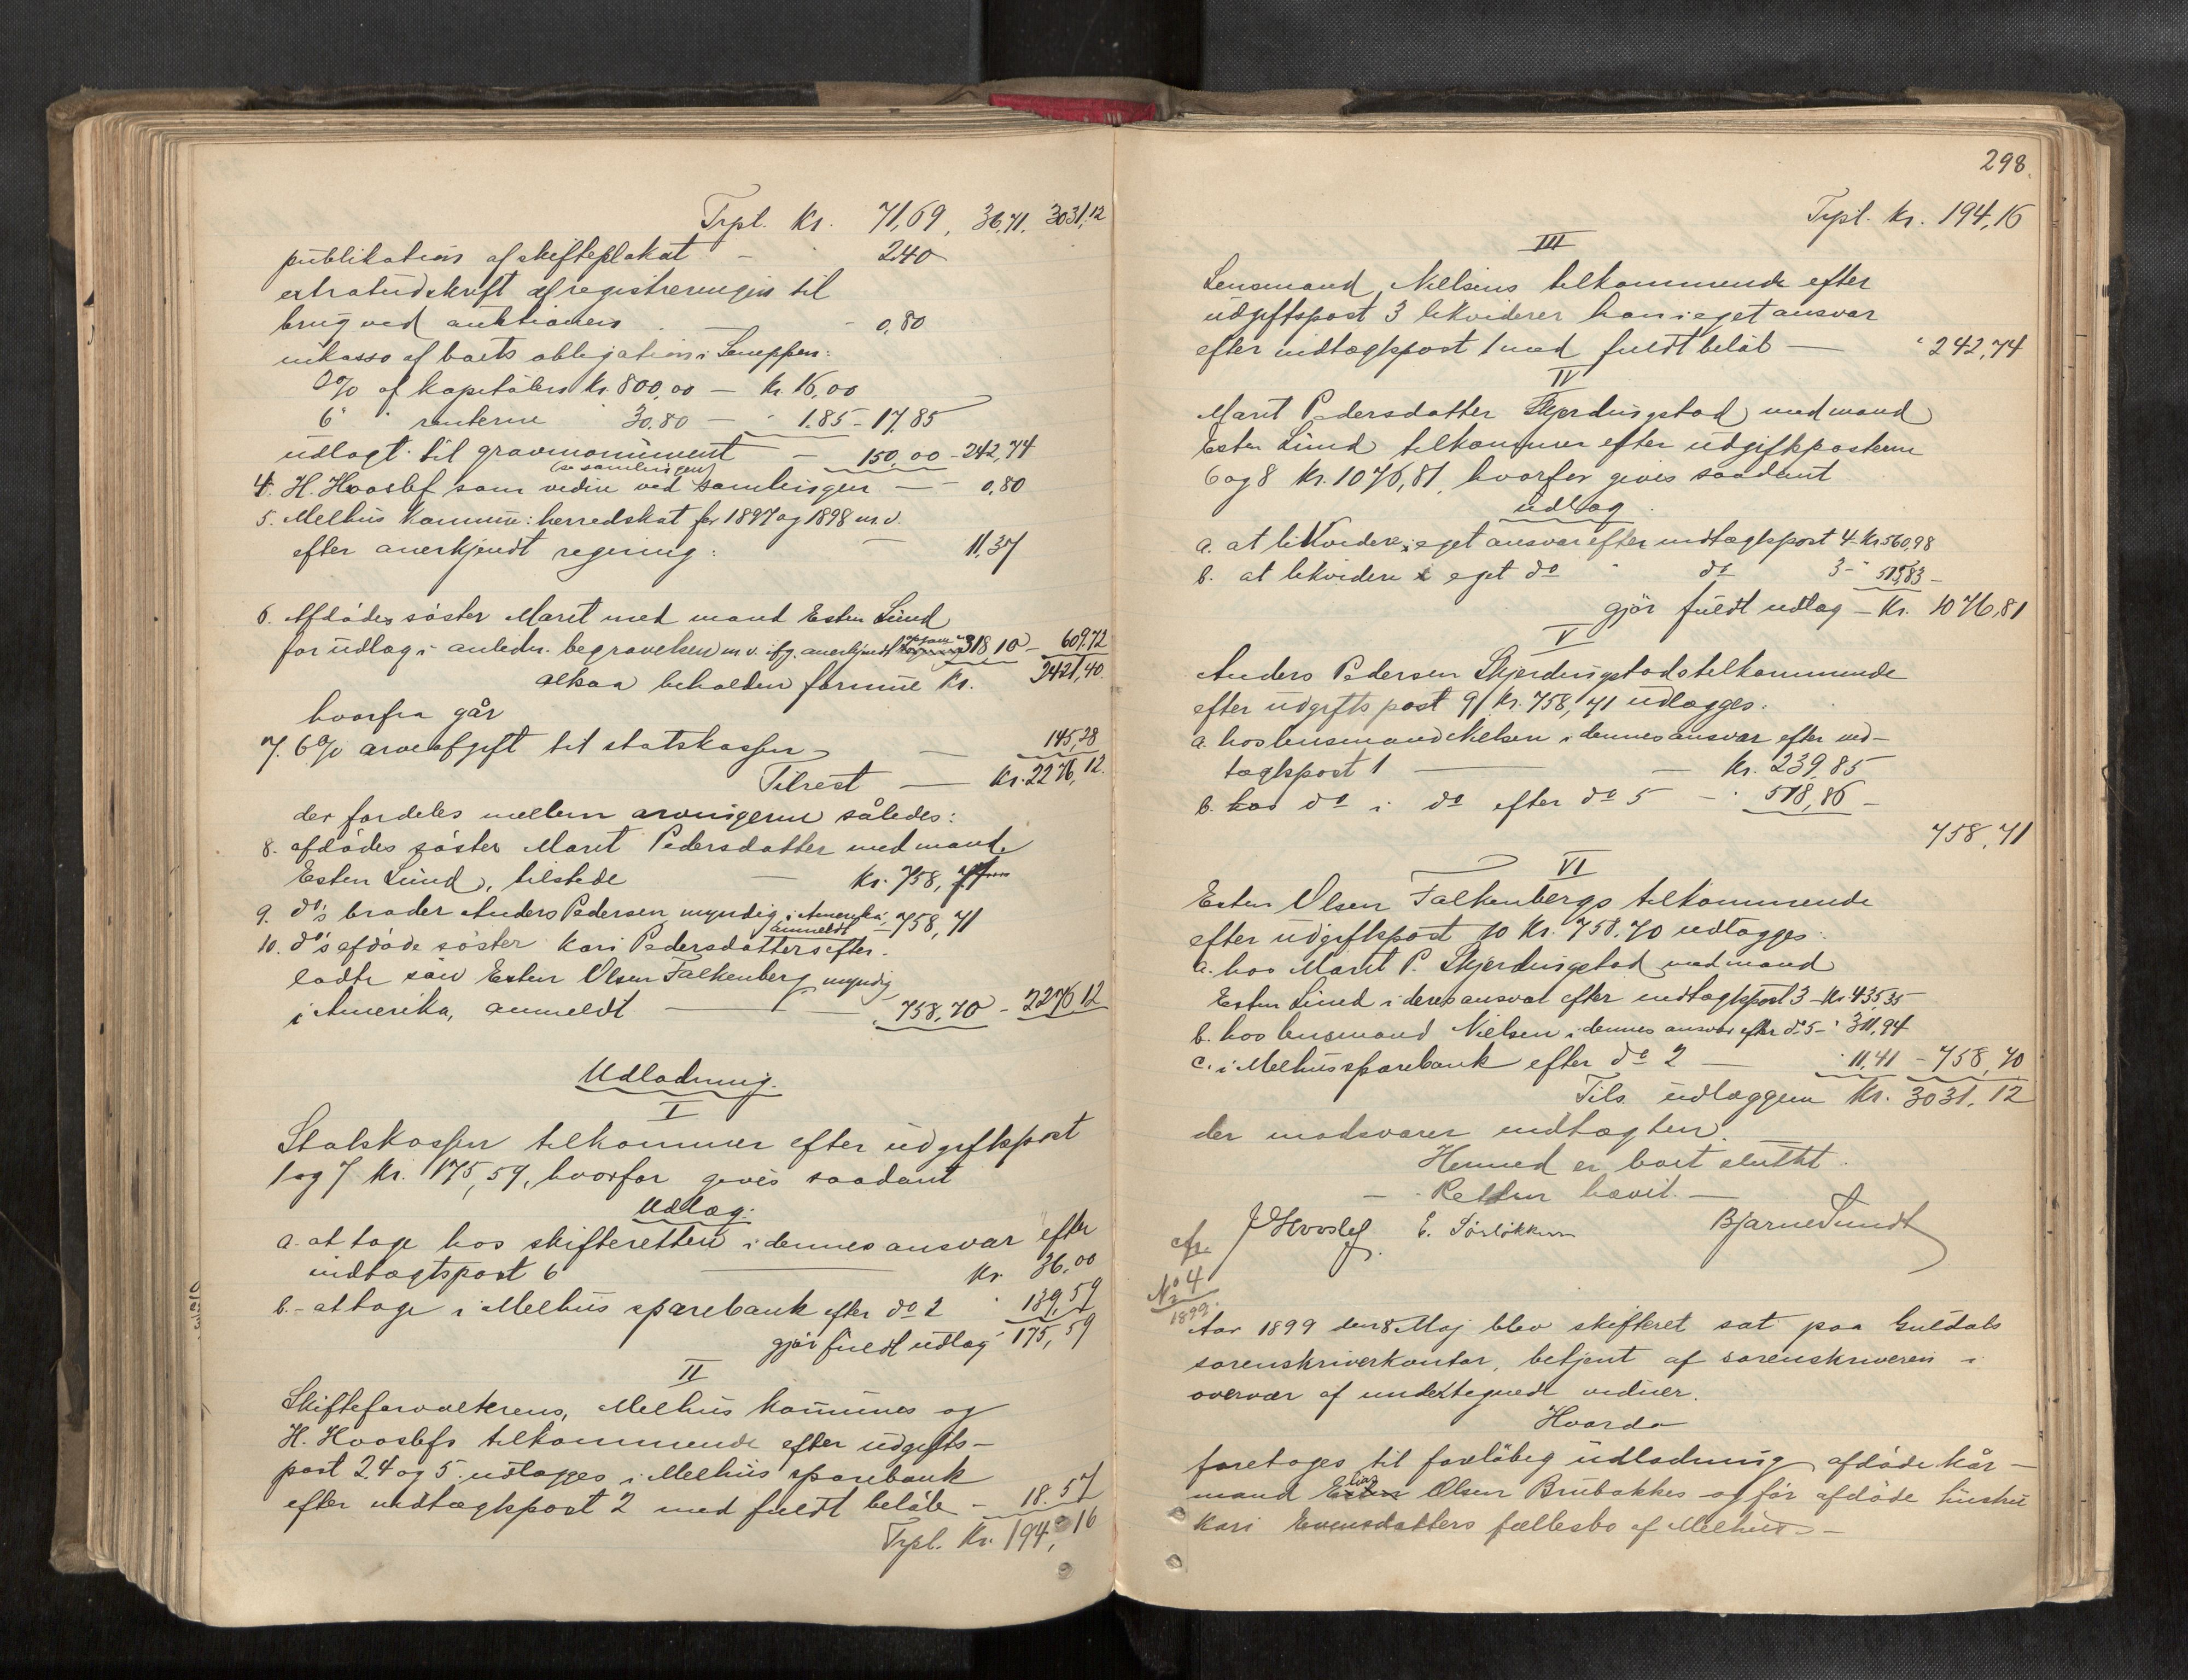 Trpt. Kr. 71,69, 36,71, 3031,12
publikation af skifteplakat - 2.40
extraudskrift af registreringen til
brug ved auktionen - 0,80
inkasso af boets obligation i :
2% af kapitalen kr. 800,00 - kr. 16,00
6" " renterne " 30.80 - " 1.85 - 17,85
udlagt til gravmonument - 150,00 - 242,74
4. H. Hooslef som vidne ved (se samlingen) samlingen - 0,80
5. Melhus kommune: herredskat for 1897 og 1898 m.v.
efter anerkjendt regning: - 11,37
6. Afdødes søster Marit med mand Esten Lund
for udlæg i anledn. begravelsen m.v. ifg. anerkjendt 318 10 - 609,72
altsaa beholden formue Kr. 2421,40.
hvorfra går
7. 6% arveafgift til statskassen - 145,28
Tilrest - Kr. 2276,12.
der fordeles mellem arvingerne således:
8. afdødes søster Marit Pedersdatter med mand
Esten Lund, tilstede - Kr. 758,71
9. do's broder Anders Pedersen myndig, i Amerika anmeldt - 758,71
10. do's afdøde søster Kari Pedersdatters efter-
ladte søn Esten Olsen Falkenberg myndig
i Amerika, anmeldt - 758,70 - 2276,12
Udlodning.
I
Statskassen tilkommer efter udgiftspost
1 og 7 Kr. 175,59, hvorfor gives saadant
Udlæg:
a. at tage hos skifteretten i dennes ansvar efter
indtægtspost 6 - Kr. 36,00
b. - at tage i Melhus sparebank efter do 2 " 139,59
gjør fuldt udlæg 175,59
II
Skifteforvalterens, Melhus kommunes og
H. Hooslefs tilkommende efter udgifts-
post 2.4 og 5. udlægges i Melhus sparebank
efter indtægtspost 2 med fuldt beløb - 18.57
Trpt. Kr. 194,16
298.
Trpt. Kr. 194,16
III
Lensmand Nielsens tilkommende efter
udgiftspost 3 likviderer han i eget ansvar
efter indtægtspost 1 med fuldt beløb - " 242,74
IV
Marit Pedersdatter Skjerdingstad med mand
Esten Lund tilkommer efter udgiftsposterne
6 og 8 Kr. 1076,81, hvorfor gives saadant
Udlæg
a. at likvidere i eget ansvar efter indtægtspost 4 - Kr 560,98
b. at likvidere i eget do " do 3 - " 515,83 -
gjør fuldt udlæg - Kr. 1076,81
V
Anders Pedersen Skjerdingstads tilkommende
efter udgiftspost 9 Kr. 758,71 udlægges:
a. hos lensmand Nielsen i dennes ansvar efter ind-
tægtspost 1 - Kr. 239,85
b. hos do i do efter do 5 - " 518,86 -
758,71
VI
Esten Olsen Falkenbergs tilkommende
efter udgiftspost 10 Kr. 758.70 udlægges:
a. hos Marit P. Skjerdingstad med mand
Esten Lund i deres ansvar efter indtægtspost 3 - Kr. 435,35
b. hos lensmand Nielsen i dennes ansvar efter do 5 - " 311,94
c. i Melhus sparebank efter do 2 - " 11,41 - 758,70
Tils. udlæggene Kr. 3031,12
der modsvarer indtægten.
Hermed er boet sluttet.
- Retten hævet. -
J Hooslef. E. Sørløkken Bjarne Sundt
No 4
1899.
Aar 1899 den 8 Maj blev skifteret sat paa Guldals
sorenskriverkontor, betjent af sorenskriveren i
overvær af undertegnede vidner.
Hvorda
foretoges til foreløbig udlodning afdøde kår-
mand Esten Olsen Brubakkes og før afdøde hustru
Kari Evensdatters fællesbo af Melhus -